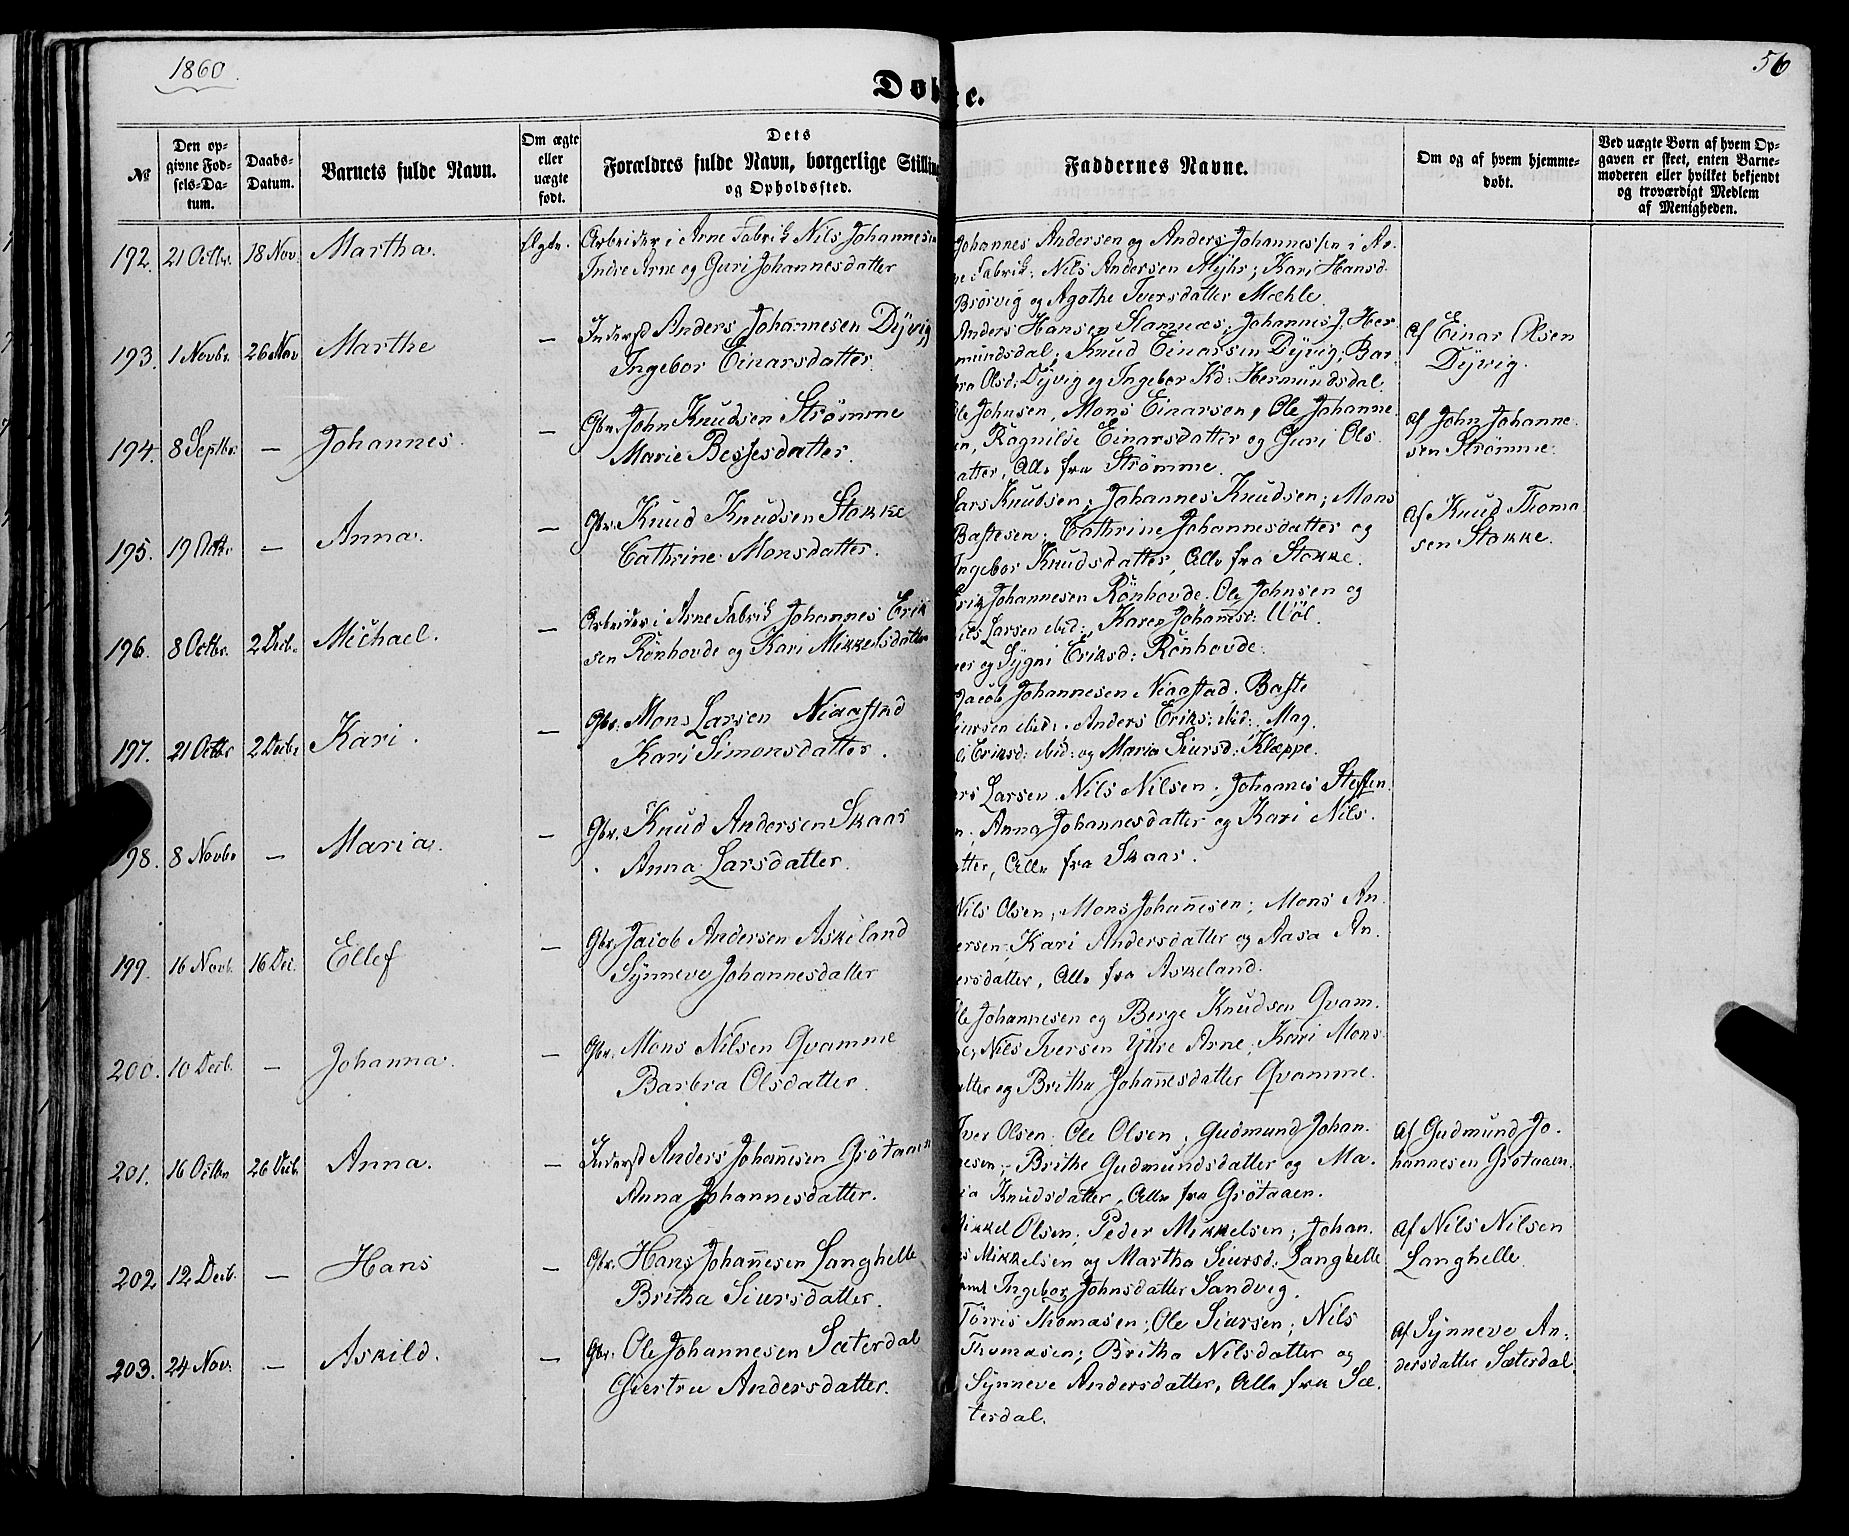 1860
56
Døbte.
№
Den op-
givne Fød-
sels-Da-
tum.
Daabs-
Datum.
Barnets fulde Navn.
Om ægte
eller
uægte
født.
Dets
Forældres fulde Navn, borgerlige Stilling
og Opholdssted.
Faddernes Navne.
Om og af hvem hjemme-
døbt.
Ved uægte Børn af hvem Op-
gaven er skeet, enten Barne-
moderen eller hvilket bekjendt
og troværdigt Medlem
af Menigheden.
192. 21 Octbr. 18 Nov. Martha. Ægte. Arbeider i Arne Fabrik Nils Johannesen
Indre Arne og Guri Johannesdatter
Johannes Andersen og Anders Johannessen i Ar-
ne Fabrik; Nils Andersen Myhr; Kari Hansd.
Brøsvig og Agothe Iversdatter Mæhle.
193. 1 Novbr. 26 Nov Marthe — Inderst Anders Johannesen Dyvig
Ingebor Einarsdatter.
Anders Hansen Stamnæs, Johannes J. Her-
mundsdal; Knud Einarsen Dyvig; Bar-
bra Olsd: Dyvig og Ingebor Kd: Hermundsdal.
Af Einar Olsen
Dyvig.
194. 8 Septbr. — Johannes. — Gbr. John Knudsen Strømme
Marie Bessesdatter.
Ole Johnsen, Mons Einarsen, Ole Johanne-
sen, Ragnilde Einarsdatter og Guri Ols-
datter, Alle fra Strømme.
Af John Johanne-
sen Strømme.
195. 19 Octbr — Anna. — Gbr. Knud Knudsen Stokke
Cathrine Monsdatter.
Lars Knudsen; Johannes Knudsen; Mons
Bastesen; Cathrine Johannesdatter og
Ingebor Knudsdatter, Alle fra Stokke.
Af Knud Thoma-
sen Stokke.
196. 8 Octbr. 2 Decb. Michael. — Arbeider i Arne Fabrik Johannes Erik-
sen Rønhovde og Kari Mikkelsdatter
Erik Johannesen Rønhovde. Ole Johnsen og
Nils Larsen ibid:, Karen Johansd:
og Sygni Eriksd: Rønhovde.
197. 21 Octbr 2 Decbr Kari. — Gbr. Mons Larsen Niaastad
Kari Simonsdatter.
Jacob Johannesen Niaastad. Baste
Siursen ibid:, Anders Eriks: ibid:, Mag-
li Eriksd: ibid: og Maria Siursd: Klæppe.
198. 8 Novbr — Maria. — Gbr. Knud Andersen Skaar
Anna Larsdatter.
Lars Larsen. Nils Nilsen; Johannes Steffen-
sen; Anna Johannesdatter og Kari Nils-
datter, Alle fra Skaar.
199. 16 Novb. 16 Dec. Ellef — Gbr. Jacob Andersen Askeland
Synneve Johannesdatter
Nils Olsen; Mons Johannesen; Mons An-
dersen; Kari Andersdatter og Aasa An-
dersdatter, Alle fra Askeland.
200. 10 Decb. — Johanna. — Gbr. Mons Nilsen Qvamme
Barbra Olsdatter.
Ole Johannesen og Berge Knudsen Qvam-
me; Nils Iversen Yttre Arne; Kari Mons-
datter og Britha Johannesdatter Qvamme.
201. 16 Octbr 26 Decb. Anna. — Inderst Anders Johannesen Grøtaaen
Anna Johannesdatter.
Iver Olsen; Ole Olsen; Gudmund Johan-
nesen; Brithe Gudmundsdatter og Ma-
ria Knudsdatter, Alle fra Grøtaaen.
Af Gudmund Jo-
hannesen Grøtaaen.
202 12 Decb. — Hans — Gbr. Hans Johannesen Langhelle
Britha Siursdatter.
Mikkel Olsen; Peder Mikkelsen; Johan-
nes Mikkelsen og Martha Siursd: Langhelle
samt Ingebor Johnsdatter Sandvig.
Af Nils Nilsen
Langhelle.
203. 24 Nov. — Askild. — Gbr. Ole Johannesen Sæterdal
Giertru Andersdatter.
Tørris Thomasen; Ole Siursen; Nils
Thomasen; Britha Nilsdatter og
Synneve Andersdatter, Alle fra Sæ-
terdal.
Af Synneve An-
dersdatter Sæterdal